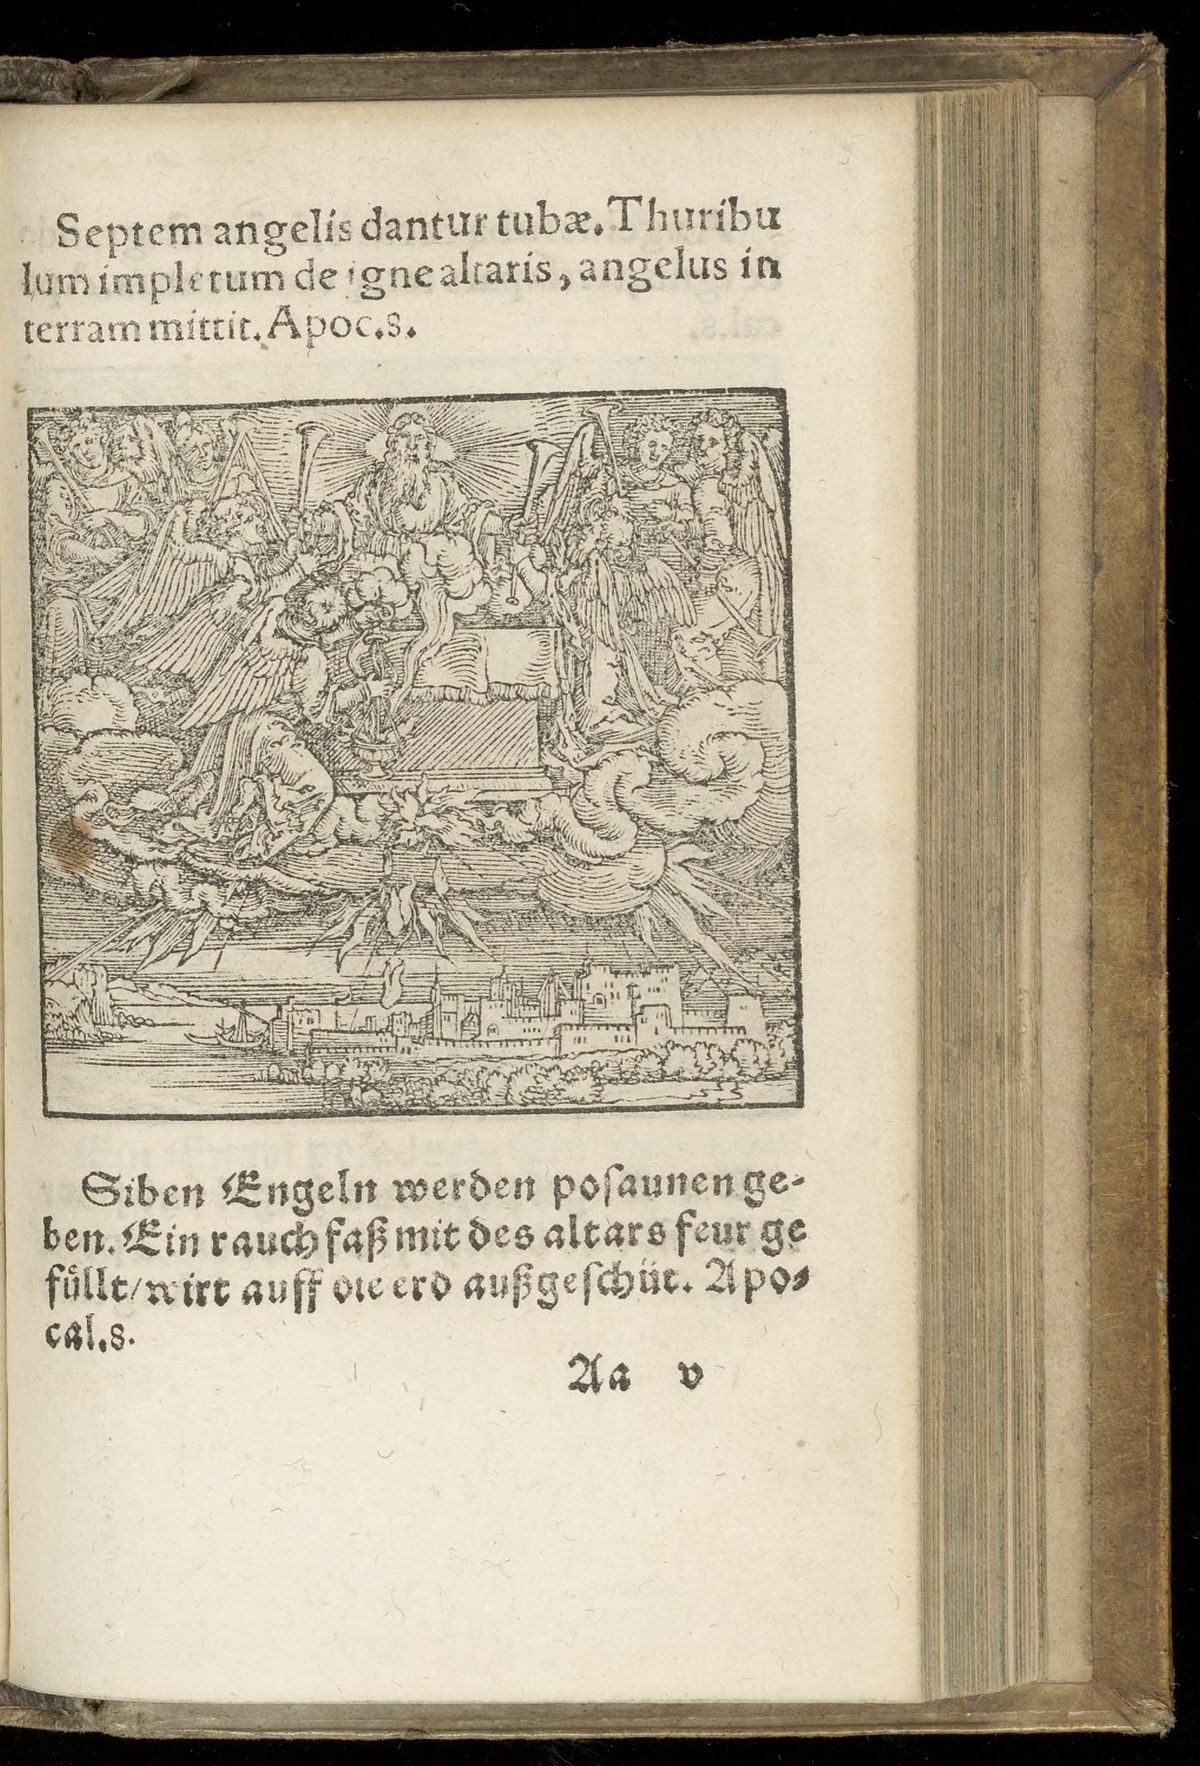 Septem angelis dantur tubæ. Thuribu
lum impletum de igne altaris, angelus in
terram mittit. Apoc.8.
Siben Engeln werden poſaunen ge-
ben. Ein rauch faß mit des altars feur ge
fuͤllt/ wirt auff die erd außgeſchüt. Apo-
cal.8.
Aa v